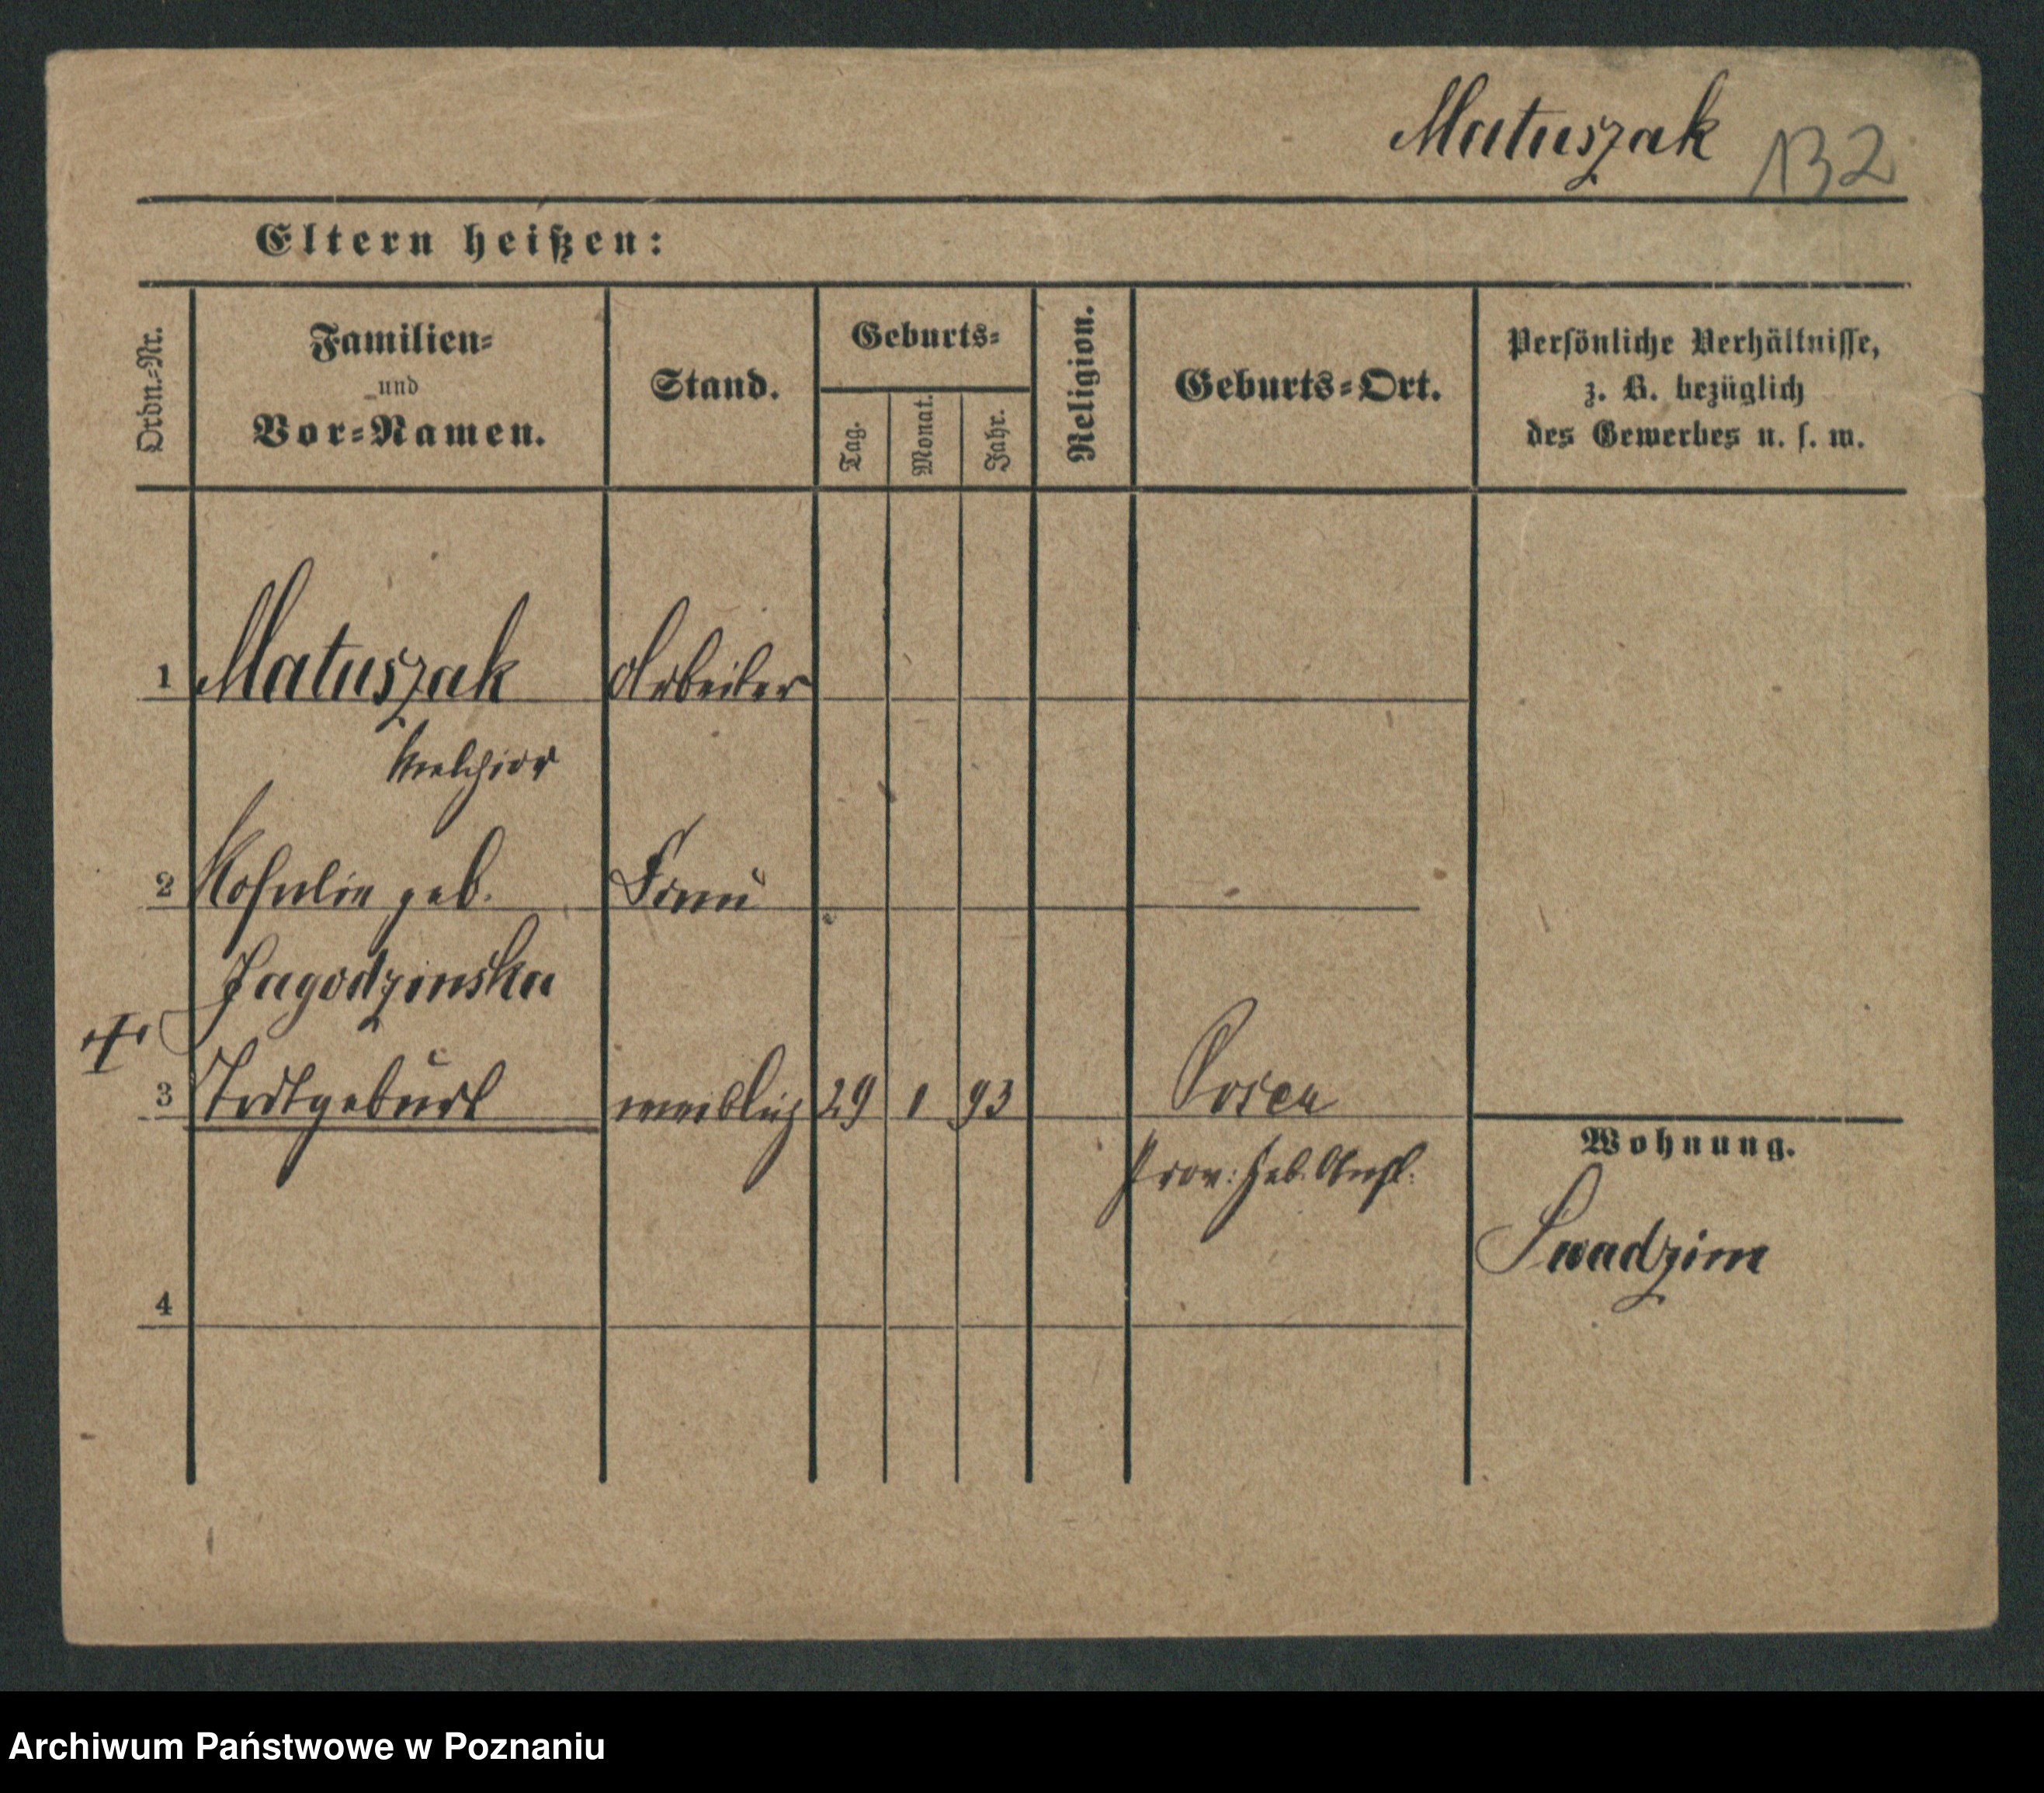 Matuszak 132
Eltern heißen:
Ordn.-Nr.
Familien-
und
Vor-Namen.
Stand.
Geburts-
Tag.
Monat.
Jahr.
Religion.
Geburts-Ort.
Persönliche Verhältnisse,
z. B. bezüglich
des Gewerbes u. s. w.
1 Matuszak Arbeiter
Melchior
2 geb. Frau
Jagodzinska
3 Todtgeburt weiblich 29 1 93 Posen
Prov: Heb. Anst.
Wohnung.
Swadzim
4
Archiwum Państwowe w Poznaniu